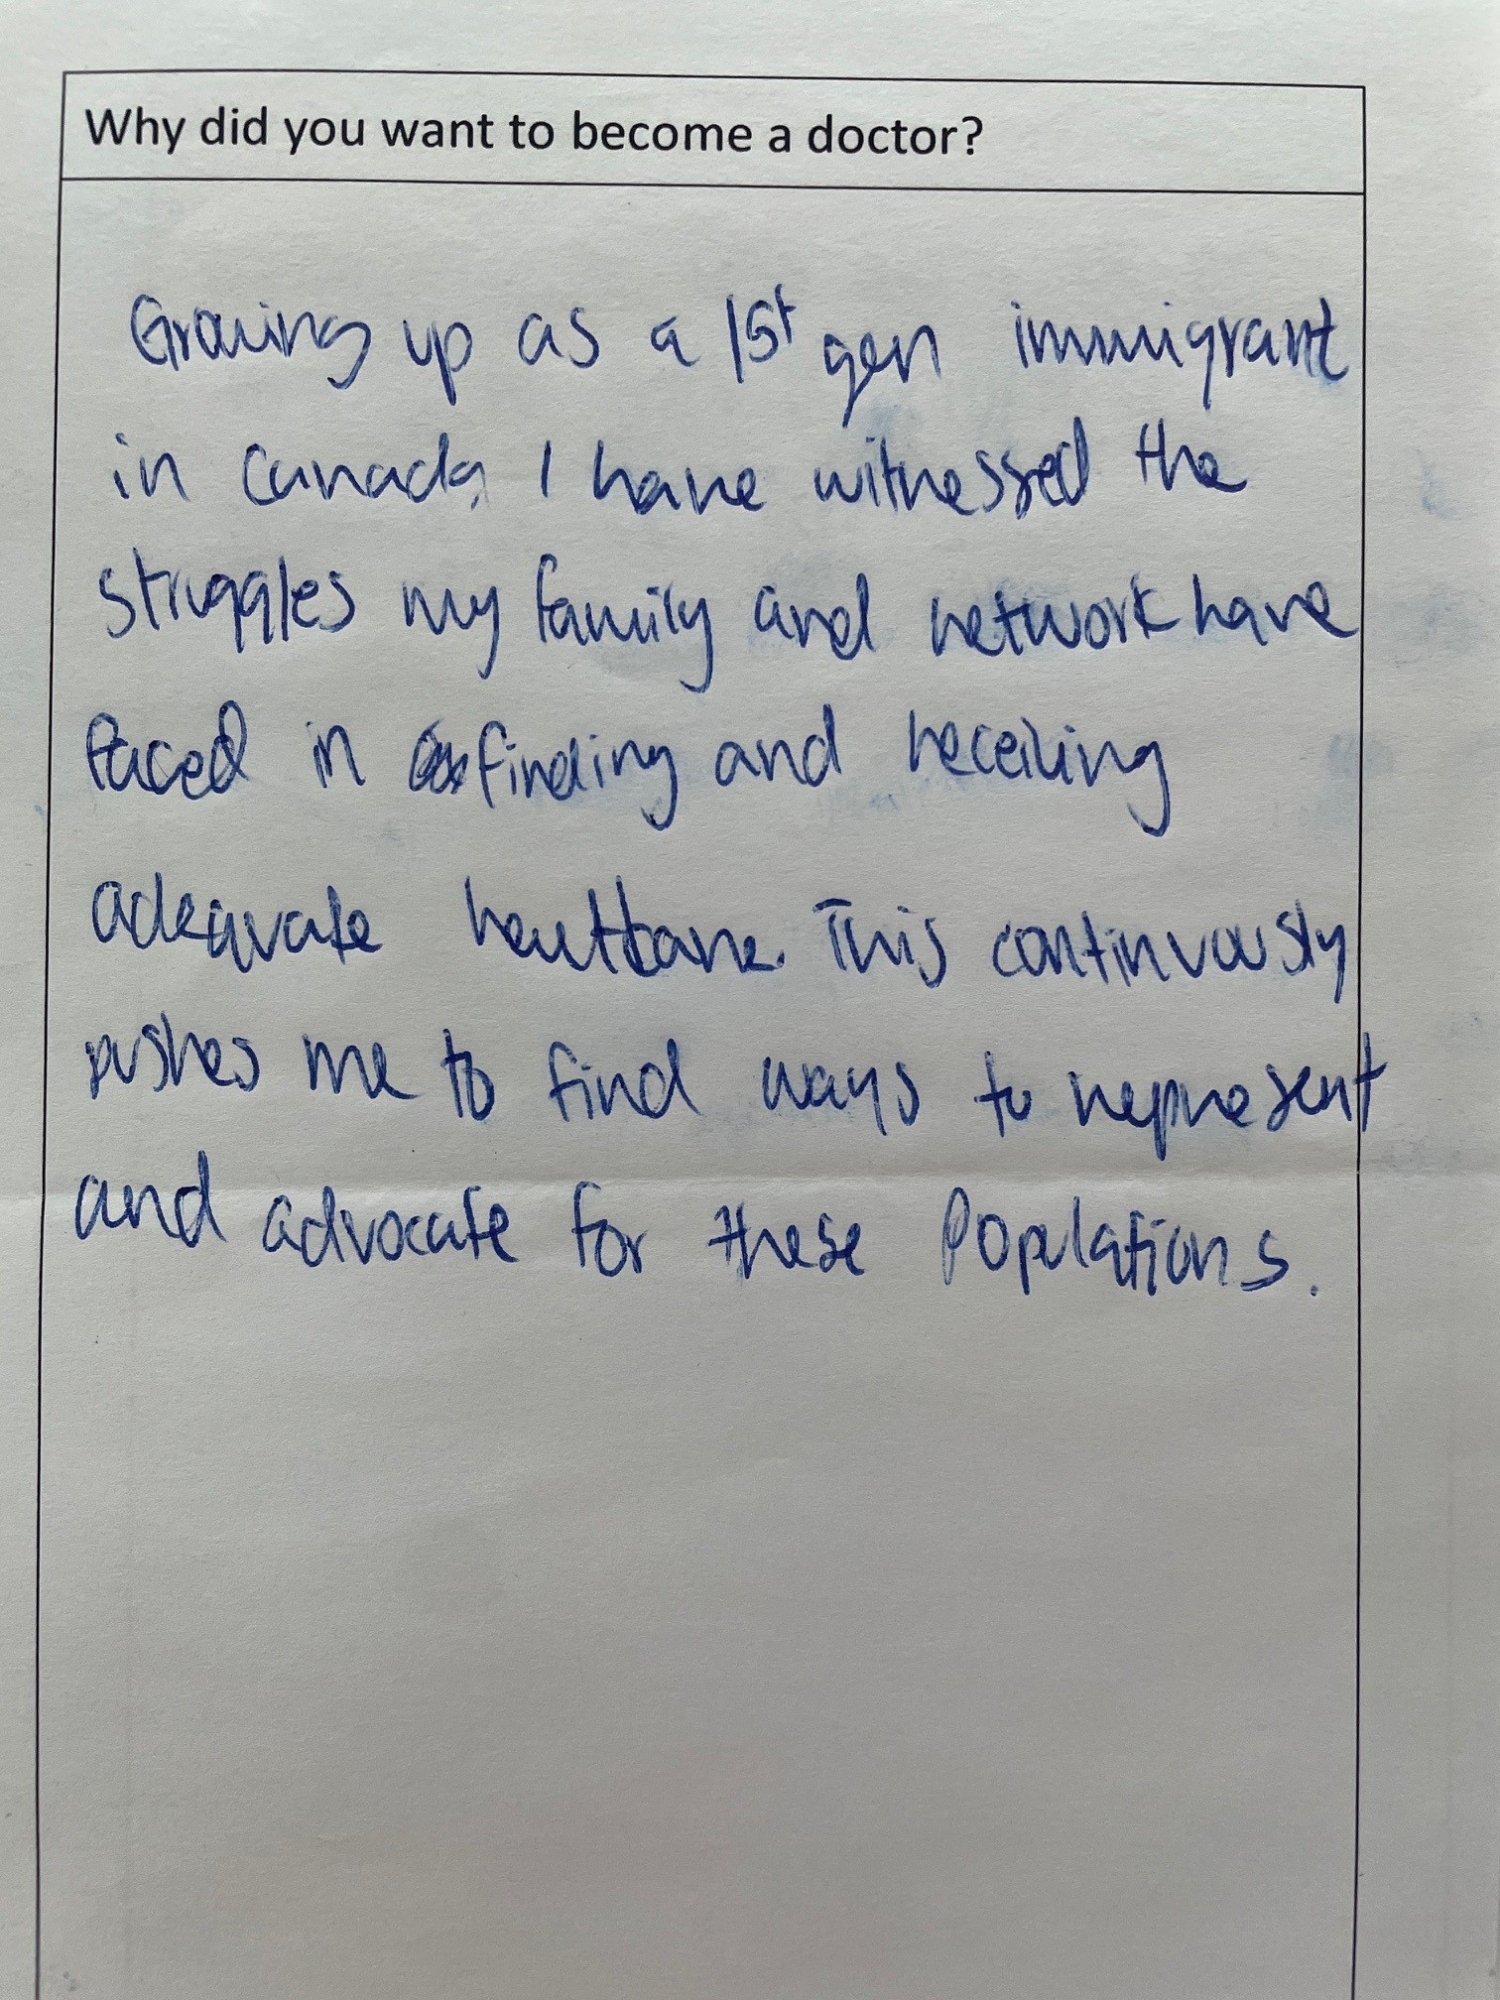 Why did you want to become a doctor?
Growing up as a 1st gen immigrant
in Canada, I have witnessed the
struggles my family and network have
faced in finding and receiving
adequate healthcare. This continuously
pushes me to find ways to represent
and advocate for these Populations.